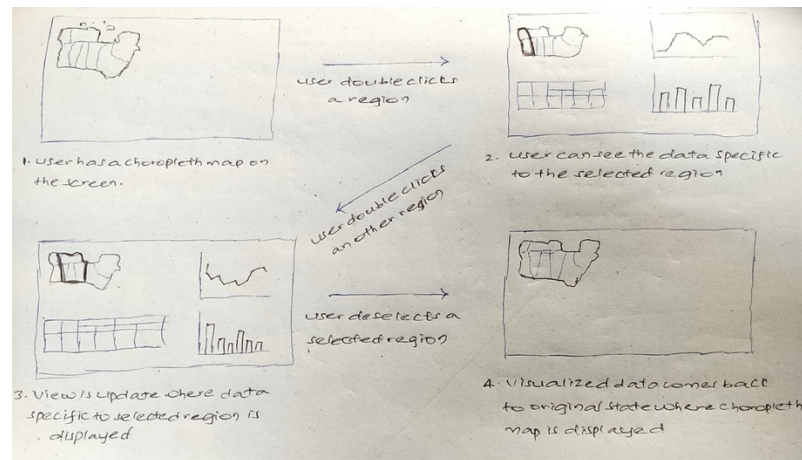 user double clicks
a region
1. user has a choropleth map on
the screen.
2. user can see the data specific
to the selected region
user double clicks
another region
3. View is update where data
specific to selected region is
displayed
user deselects a
selected region
4. Visualized data comes back
to original state where choropleth
map is displayed